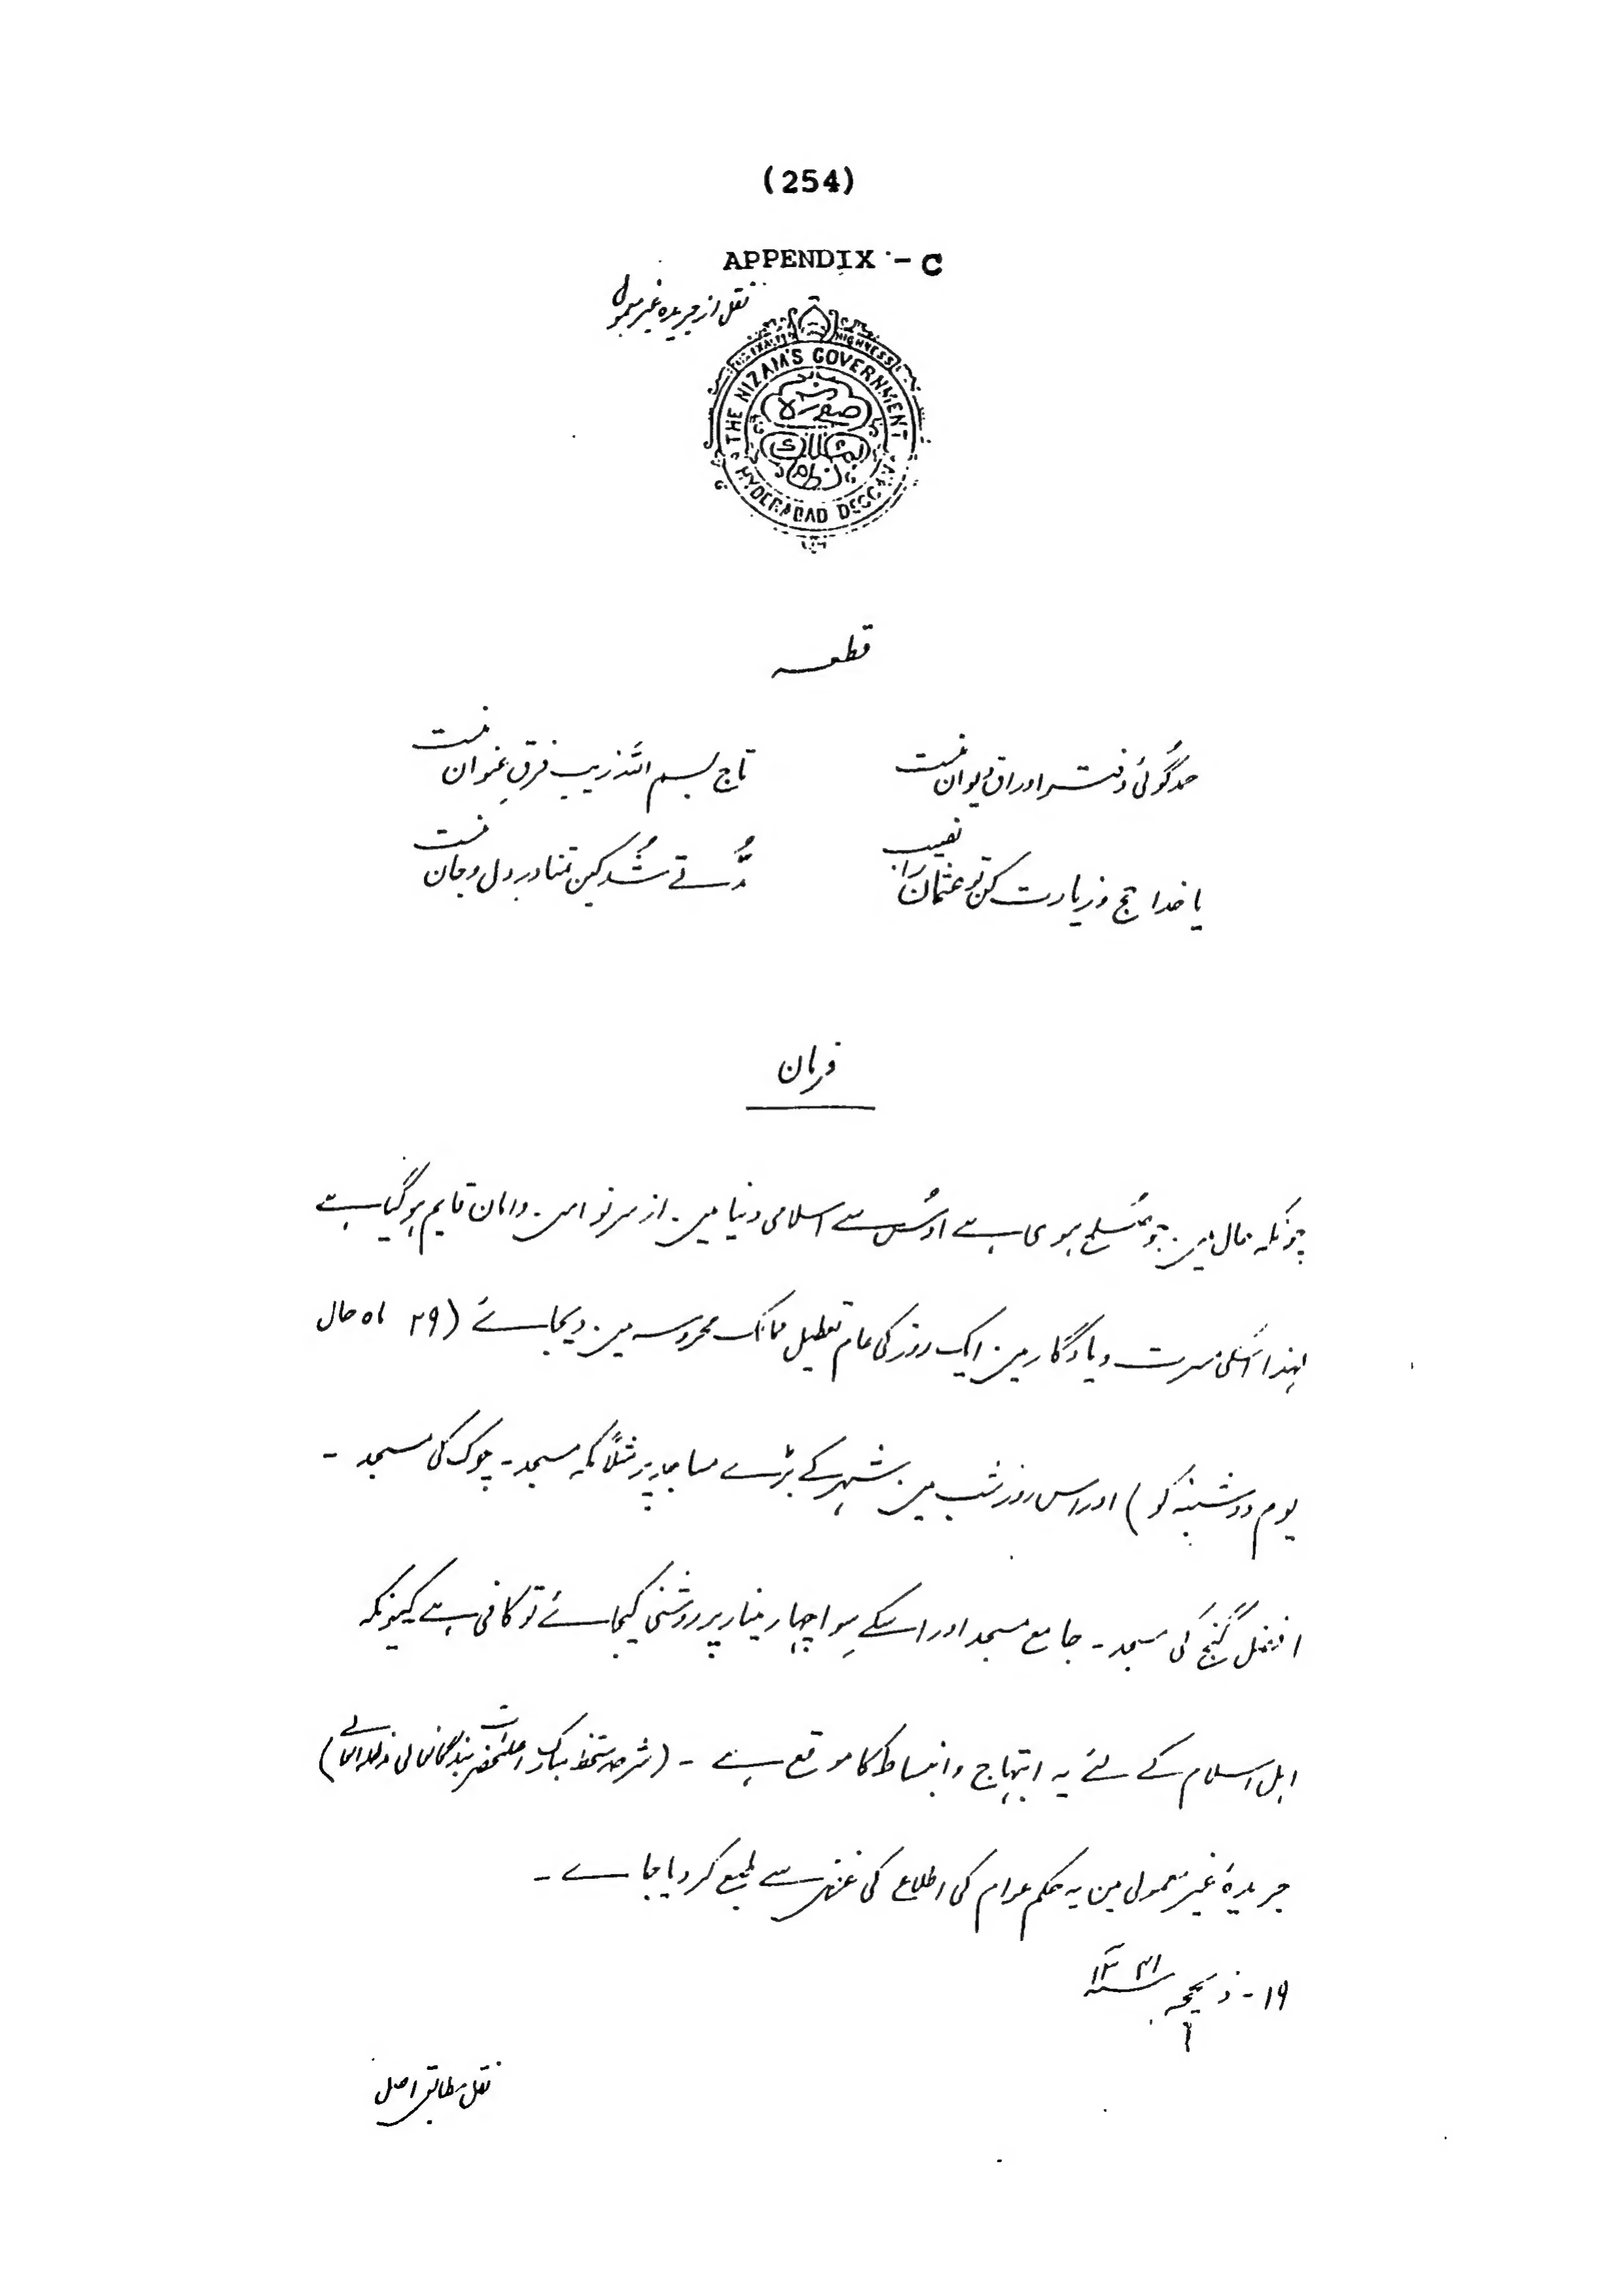 (254)
APPENDIX - C
نقل از جریدہ غیر معمولی
HIGHNESS
THE NIZAM'S GOVERNMENT
HYDERABAD DECCAN
قطعہ
حمد گوئی دفتر اوراق دیوان منست تاج بسم اللہ زیب فرقِ عنوان منست
یا خدا حج و زیارت کن تو عثمان را نصیب مُدّتے شُد کین تمنا در دل و جان منست
فرمان
چونکہ حال میں جو صُلح ہوی ہے اوسُ سے اسلامی دنیا میں از سر نو امن و امان قایم ہوگیا ہے
لہذا اسکی مسرت و یادگار میں ایک روز کی عام تعطیل ممالک محروسہ میں دیجائے (۲۹ ماہ حال
یوم دوشنبہ کو) اور اس روز شب میں شہر کے بڑے مساجد پر مثلاً مکہ مسجد - چوک کی مسجد -
افضل گنج کی مسجد - جامع مسجد اور اسکے سِوا چہار مینار پر روشنی کیجائے تو کافی ہے کیونکہ
اہل اسلام کے لئے یہ ابتہاج و انبساط کا موقع ہے - (شرحدستخط مبارک اعلٰحضرت بندگانعالی مدظلہ العالی)
جریدۂ غیر معمولی میں یہ حکم عوام کی اطلاع کی غرض سے طبع کر دیا جاے -
۱۹ - ذیحجہ ۱۳۴۱
نقل مطابق اصل